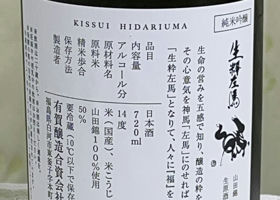 KISSUI HIDARIUMA
純米吟醸
生粋左馬
山田錦
生原酒
生命の営みを五感で知り、醸造の粋を
その心意気を神馬「左馬」にのせれば
「生粋左馬」となりて、人々に『福』を
品目 日本酒
内容量 720ml
アルコール分 14度
原材料名 米(国産)米こうじ
原料米 山田錦100%使用
精米歩合 50%
保存方法 要冷蔵(10℃以下で保存
製造者 有賀醸造合資会社
福島県白河市東釜子字本町